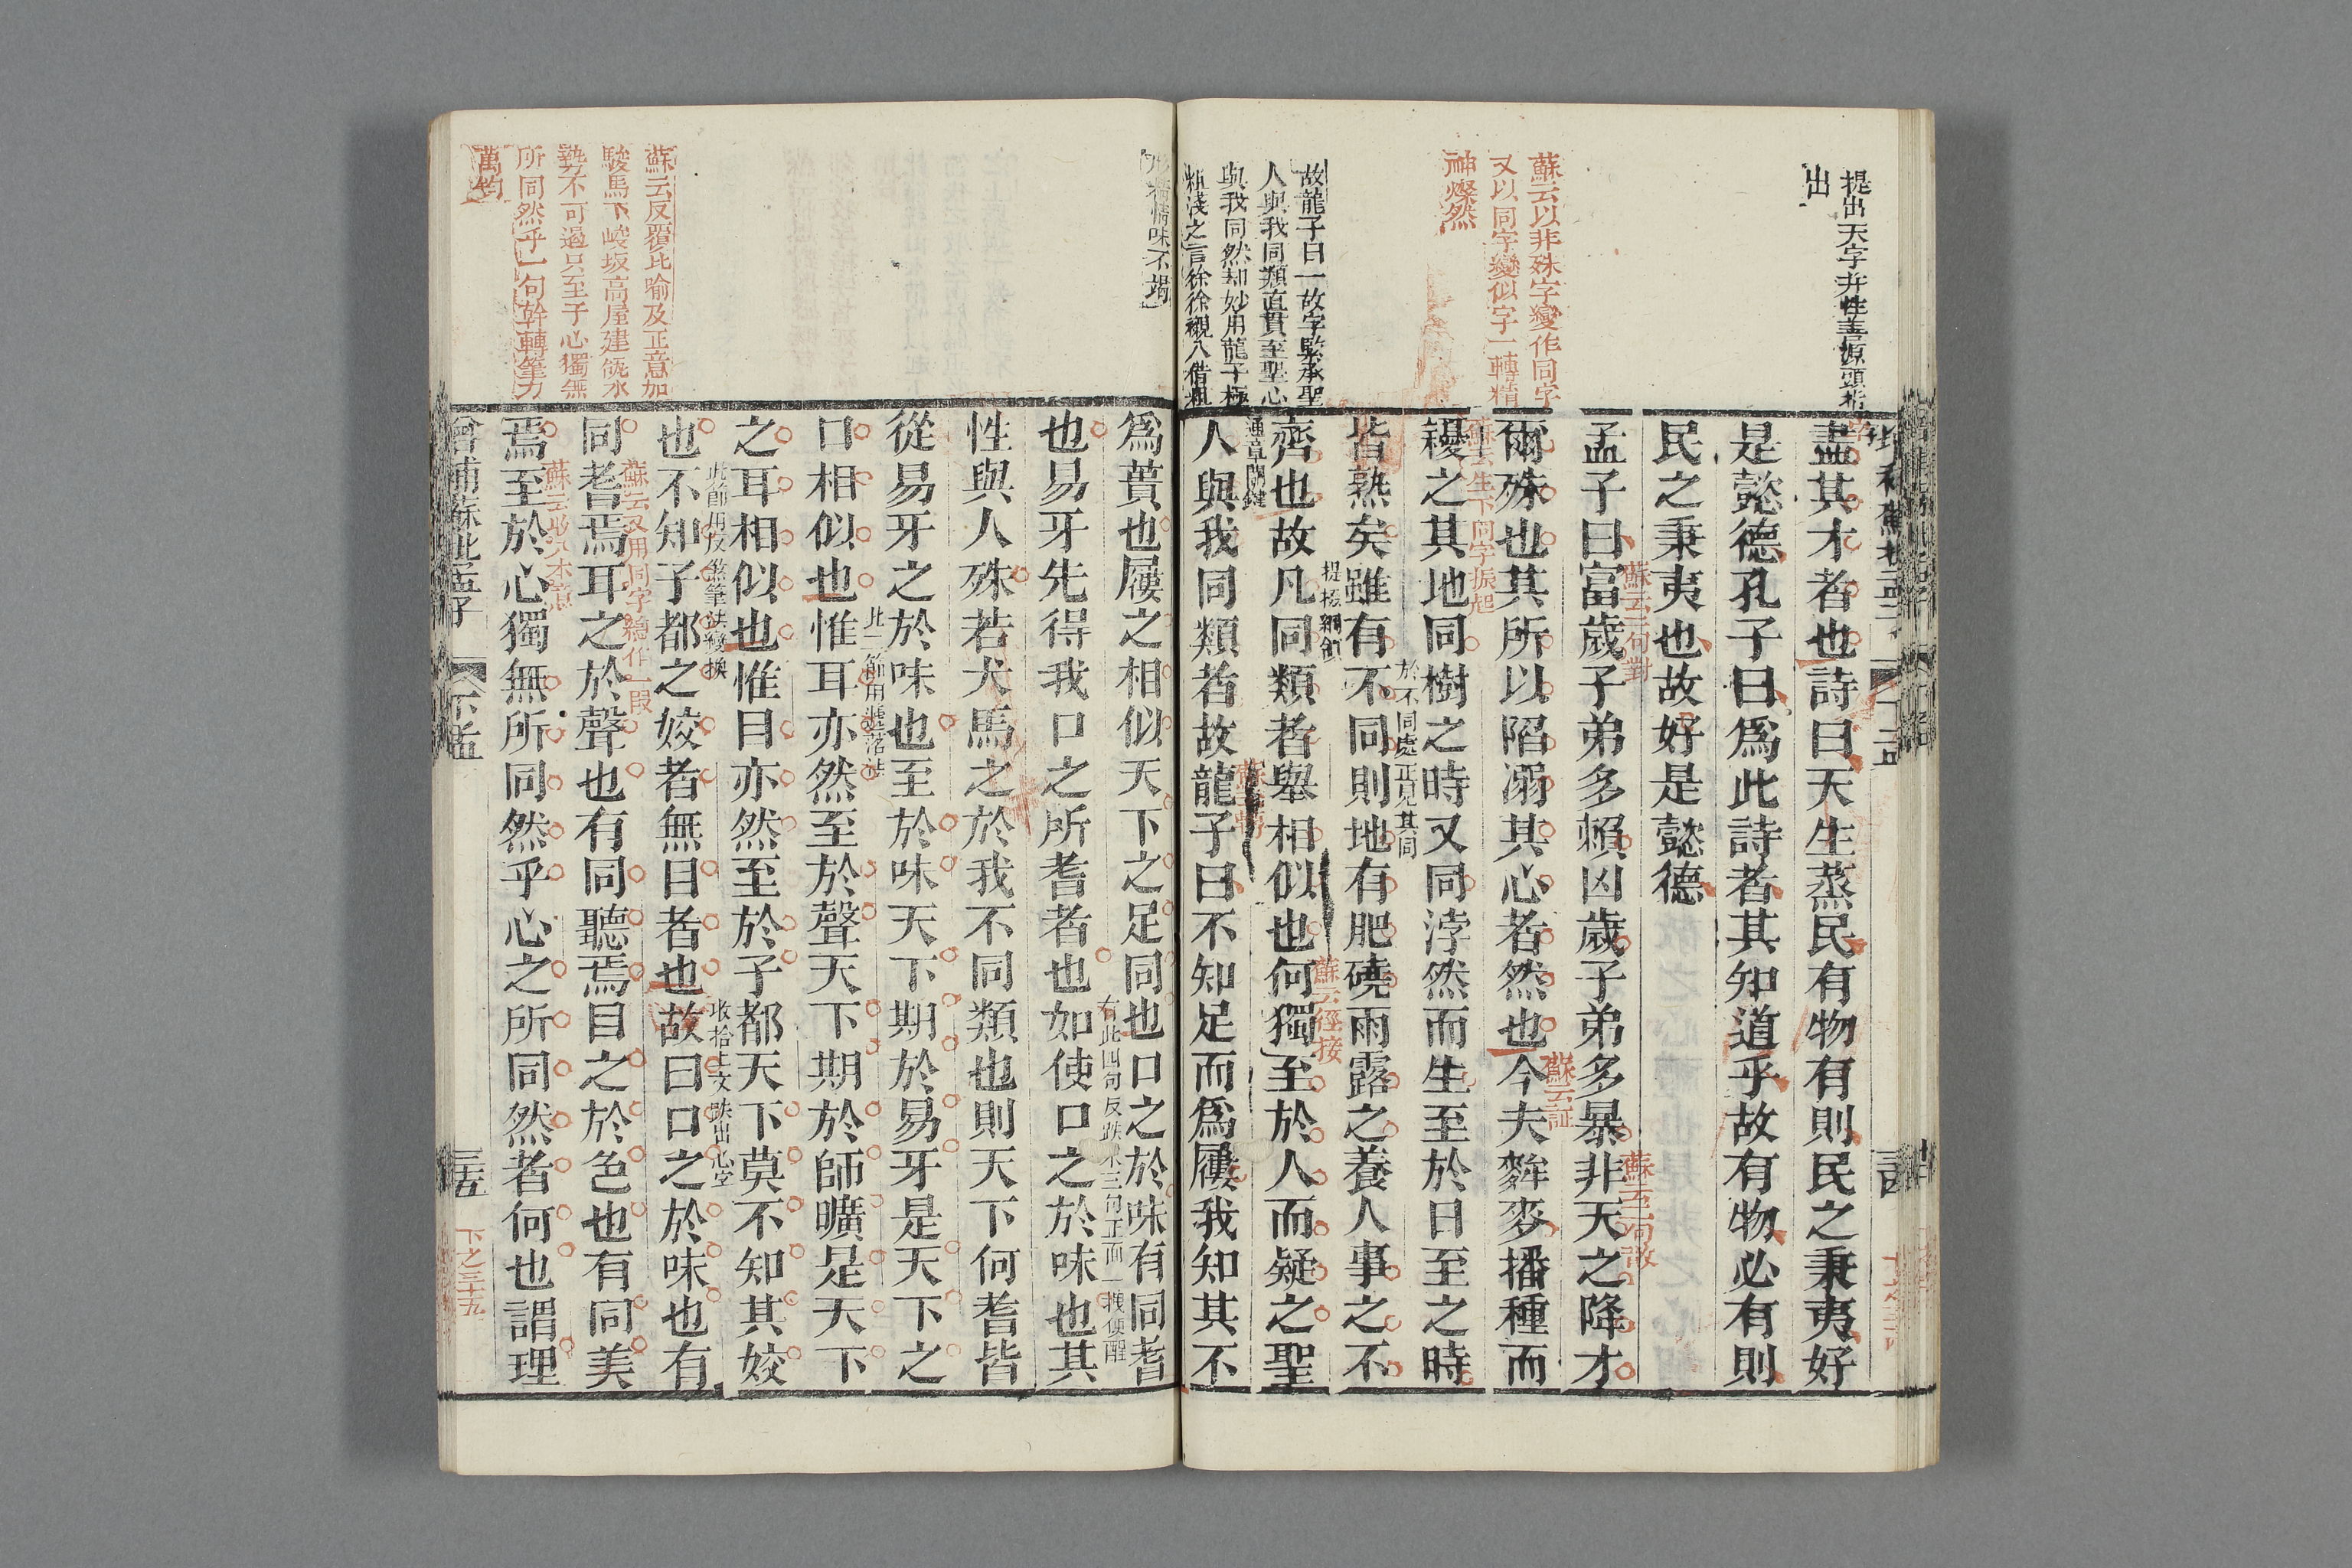 提出天字并性善原頭指
出
盡其才者也詩曰天生蒸民有物有則民之秉夷好
是懿德孔子曰爲此詩者其知道乎故有物必有則
民之秉夷也故好是懿德
蘇云二句對
蘇云一句散
孟子曰富歲子弟多賴凶歲子弟多暴非天之降才
蘇云以非殊字變作同字
又以同字變似字一轉精
神燦然
蘇云証
爾殊也其所以陷溺其心者然也今夫麰麥播種而
蘇云生下同字振起
耰之其地同樹之時又同浡然而生至於日至之時
於不同處正見其同
皆熟矣雖有不同則地有肥磽雨露之養人事之不
故龍子曰一故字緊承聖
人與我同類直貫至聖心
與我同然却妙用龍子極
粗淺之言徐徐襯入借粗
提振綱領
蘇云徑接
齊也故凡同類者舉相似也何獨至於人而疑之聖
通章關鍵
人與我同類者故龍子曰不知足而爲屨我知其不
形精情味不竭
爲蕢也屨之相似天下之足同也口之於味有同耆
右此四句反跌下三句正而一拽便醒
也易牙先得我口之所耆者也如使口之於味也其
性與人殊若犬馬之於我不同類也則天下何耆皆
從易牙之於味也至於味天下期於易牙是天下之
此二節用遞落法
口相似也惟耳亦然至於聲天下期於師曠是天下
之耳相似也惟目亦然至於子都天下莫不知其姣
此節用反煞筆法變換
收拾上文跌出心字
也不知子都之姣者無目者也故曰口之於味也有
蘇云反覆比喻及正意加
駿馬下峻坂高屋建瓴水
勢不可遏只至于心獨無
所同然乎一句斡轉筆力
萬鈞
蘇云又用同字總作一段
同耆焉耳之於聲也有同聽焉目之於色也有同美
蘇云收入本意
焉至於心獨無所同然乎心之所同然者何也謂理
增補蘇批孟子
下孟
三五
下之三十五